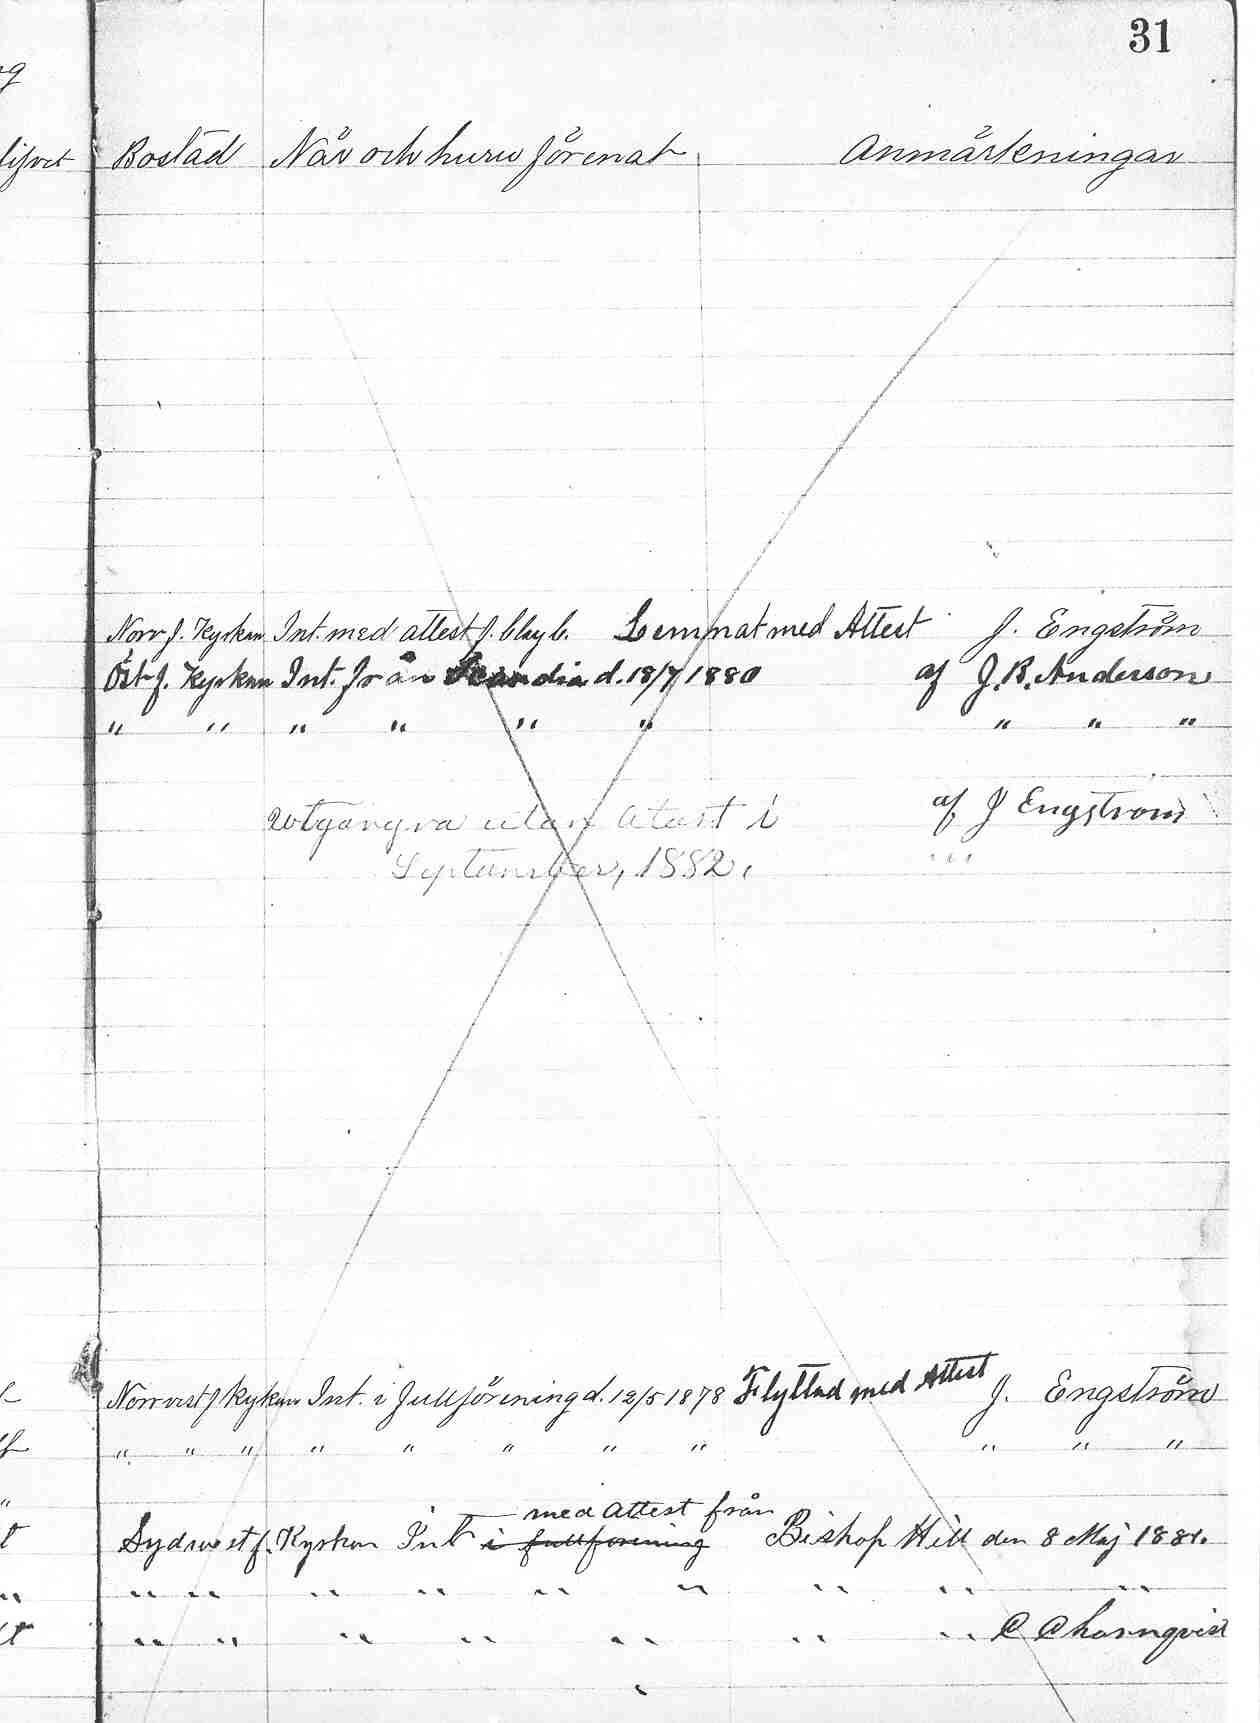 31
Bostad När och huru förenat Anmärkningar
Norr f. Kyrkan Int. med attest f. Lemnat med Attest J. Engström
Öst f. Kyrkan Int. från Scandia d. 18/7 1880 af J. R. Anderson
" " " " " " " " "
utan i af J Engstrom
September, 1882. " "
Norrvest f kyrkan Int. i full förening d. 12/5 1878 Flyttad med Attest J. Engström
" " " " " " " " " " "
med Attest från
Sydwest f. Kyrkan Int i full forening Bishop Hill den 8 Maj 1881.
" " " " " " " " "
" " " " " " " C